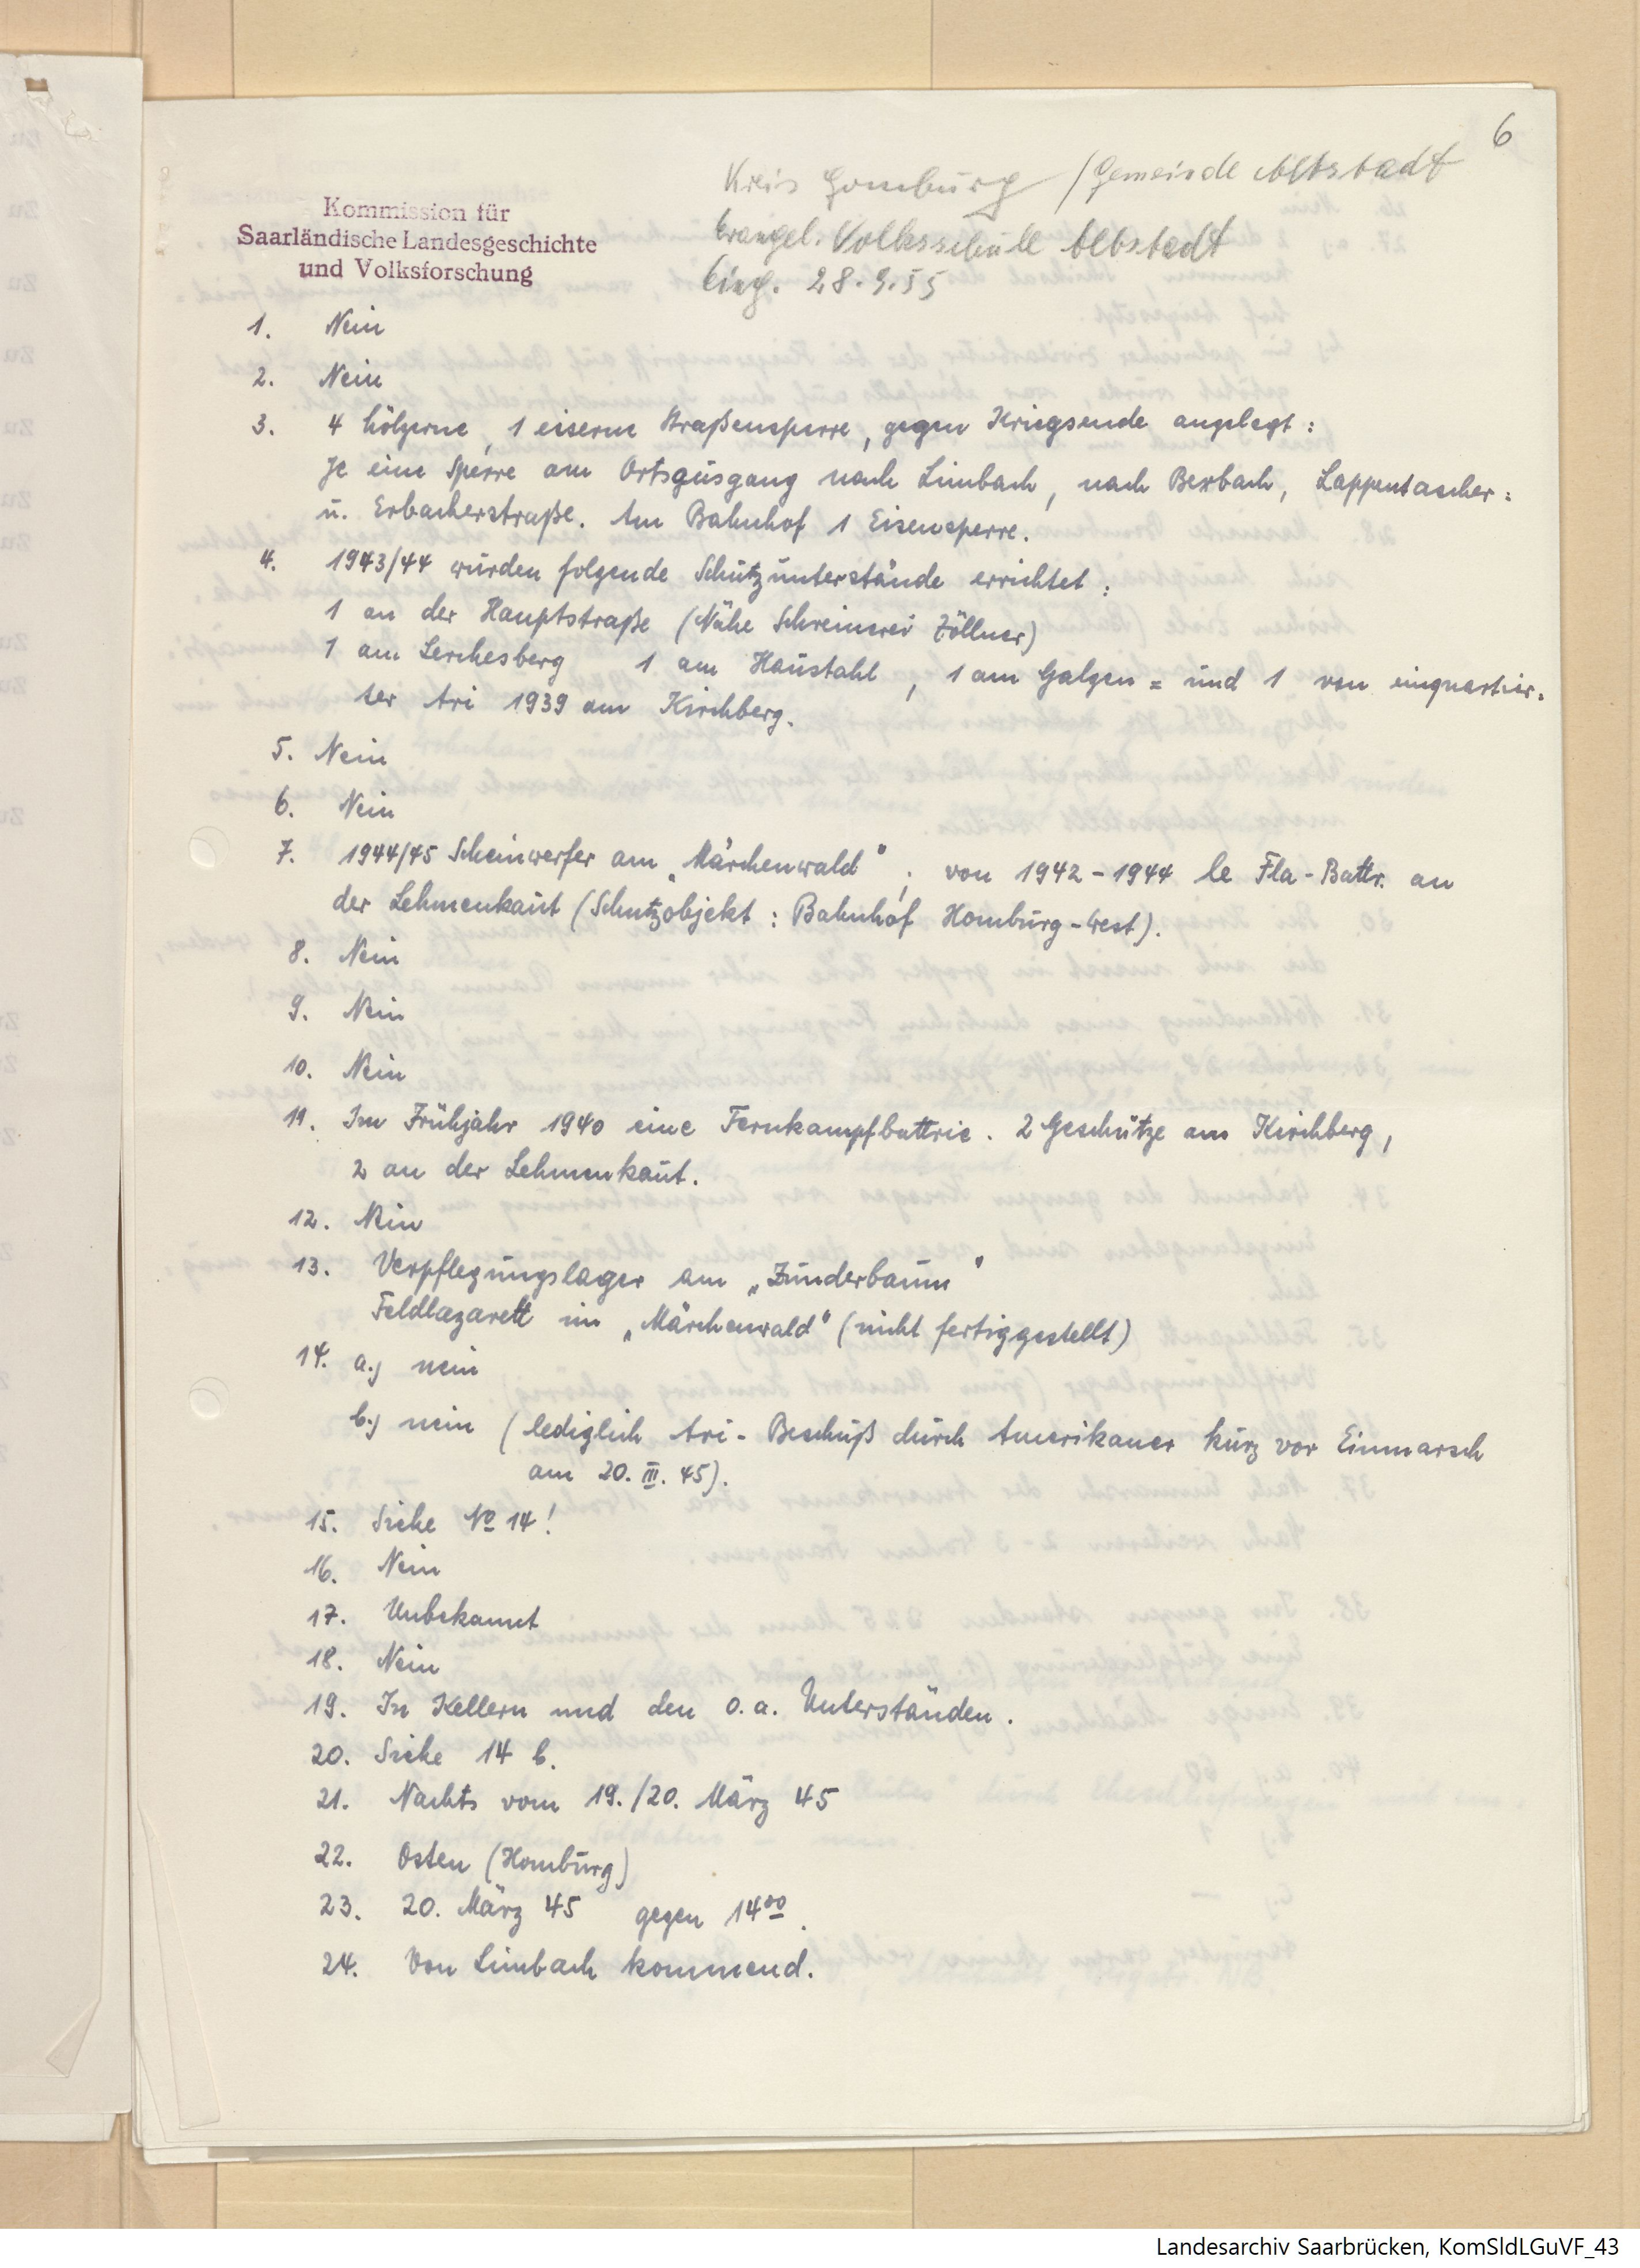 6
Kreis Homburg / Gemeinde Altstadt
Kommission für
Saarländische Landesgeschichte
und Volksforschung
Evangel. Volksschule Altstadt
Eing. 28.9.55
1. Nein
2. Nein
3. 4 hölzerne, 1 eiserne Straßensperre, gegen Kriegsende angelegt:
Je eine Sperre am Ortsausgang nach Limbach, nach Bexbach, Lappentascher=
u. Erbacherstraße. Am Bahnhof 1 Eisensperre.
4. 1943/44 wurden folgende Schutzunterstände errichtet:
1 an der Hauptstraße (Nähe Schreinerei Zöllner)
1 am Lerchesberg 1 am Haustahl, 1 am Galgen = und 1 von einquartier=
ter Ari 1939 am Kirchberg.
5. Nein
6. Nein
7. 1944/45 Scheinwerfer am „Märchenwald“; von 1942-1944 le Fla-Battr. an
der Lehmenkaut (Schutzobjekt: Bahnhof Homburg-West).
8. Nein
9. Nein
10. Nein
11. Im Frühjahr 1940 eine Fernkampfbattrie. 2 Geschütze am Kirchberg,
2 an der Lehmenkaut.
12. Nein
13. Verpflegungslager am „Zunderbaum“
Feldlazarett im „Märchenwald“ (nicht fertiggestellt)
14. a.) nein
b.) nein (lediglich Ari-Beschuß durch Amerikaner kurz vor Einmarsch
am 20. III. 45).
15. Siehe No 14!
16. Nein
17. Unbekannt
18. Nein
19. In Kellern und den o.a. Unterständen.
20. Siehe 14 b.
21. Nachts vom 19./20. März 45
22. Osten (Homburg)
23. 20. März 45 gegen 14 00.
24. Von Limbach kommend.
Landesarchiv Saarbrücken, KomSldLGuVF_43